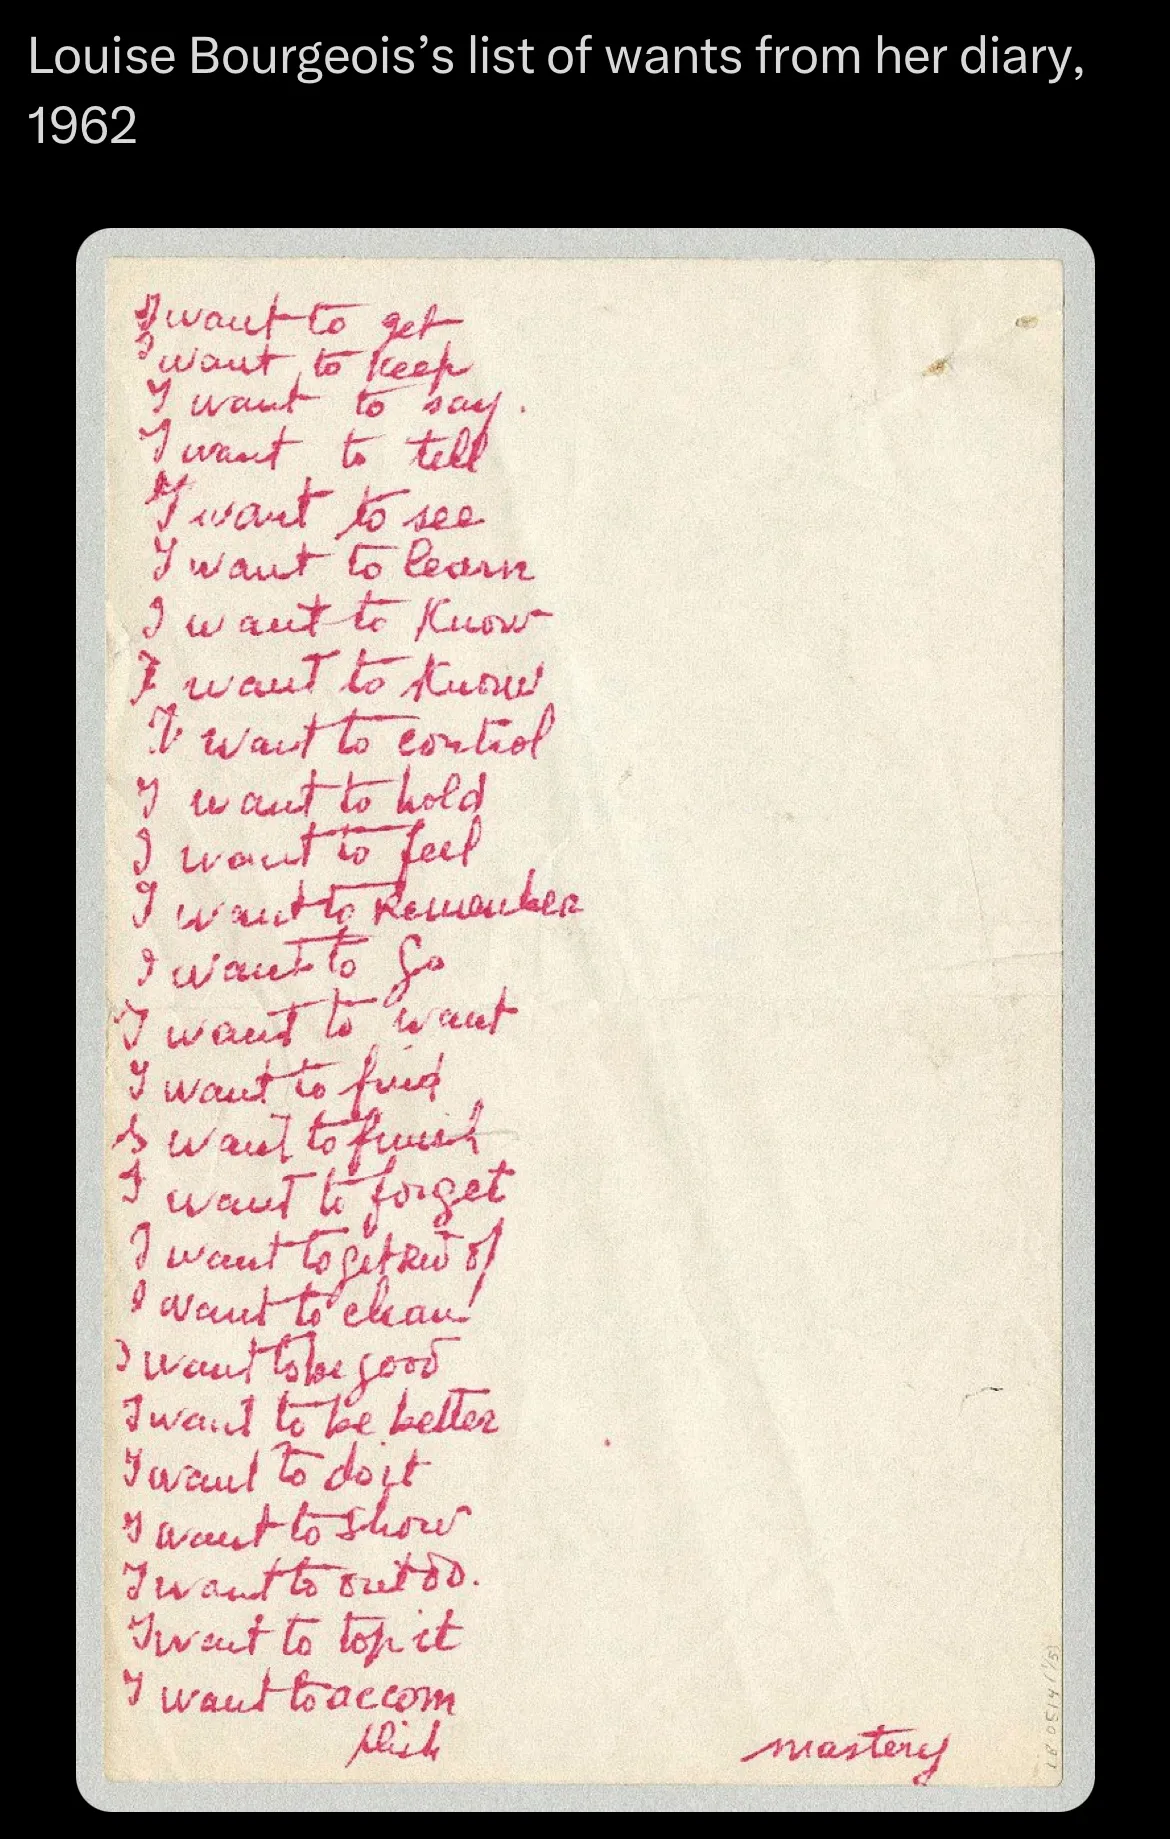 Louise Bourgeois’s list of wants from her diary,
1962
I want to get
I want to keep
I want to say.
I want to tell
I want to see
I want to learn
I want to Know
I want to Know
I want to control
I want to hold
I want to feel
I want to Remember
I want to go
I want to want
I want to find
I want to finish
I want to forget
I want to get Rid of
I want to clean
I want to be good
I want to be better
I want to do it
I want to show
I want to outdo.
I want to top it
I want to accom
plish
mastery
LB 0514 (1/5)